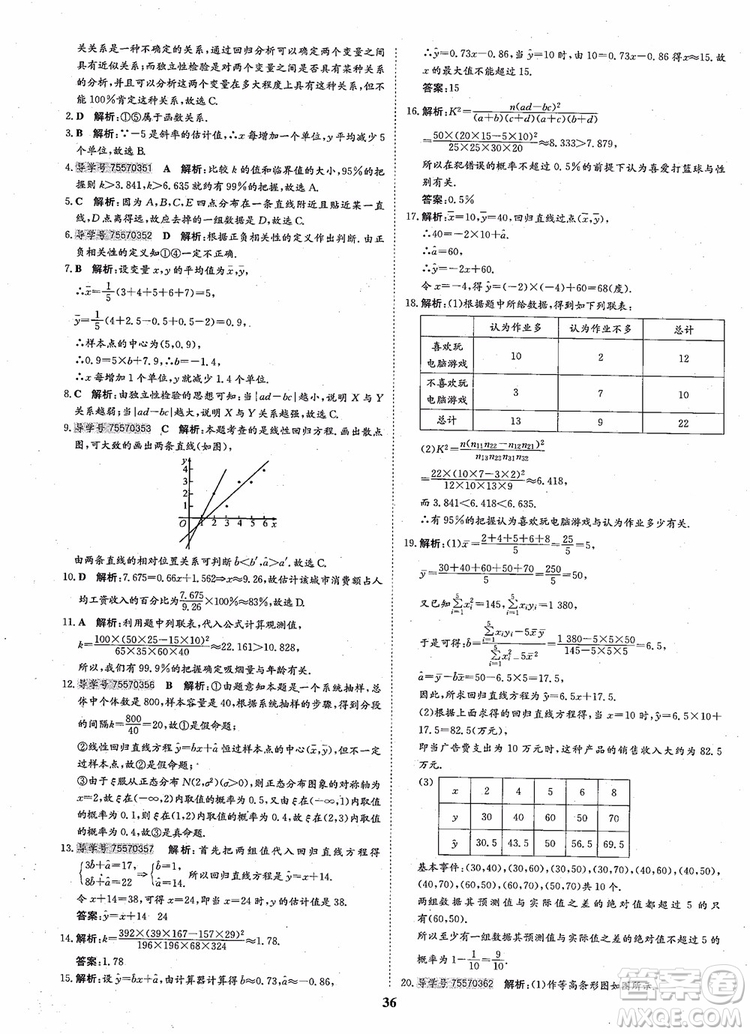 关关系是一种不确定的关系，通过回归分析可以判断两个变量之间
具有近似关系；而独立性检验是对两个变量之间是否具有某种关系
的分析，并且可以分析这两个变量在多大程度上具有这种关系，但不
能100%肯定这种关系，故选C.
2. D 解析：①⑤属于函数关系.
3. B 解析：∵－5是斜率的估计值，∴x每增加一个单位时，y平均减
少5个单位，故选B.
4. 导学号 75570351 A 解析：比较k的值和临界值的大小，95%的把
握则k＞3.841，k＞6.635就约有99%的把握.
5. C 解析：因为A，B，C，E四点分布在一条直线附近且贴近某一直
线，D点离得远，故去掉D点剩下的一组数据是D，故选C.
6. 导学号 75570352 D 解析：根据正负相关性的定义作出判断. 由正
负相关性的定义知①④一定不正确.
7. B 解析：设变量x，y的平均值为x̄，ȳ，
∴x̄=1/5(3+4+5+6+7)=5，
ȳ=1/5(4+2.5-0.5+0.5-2)=0.9，
∴样本点的中心为(5，0.9)，
∴0.9=5×b+7.9，∴b=－1.4，
∴x每增加1个单位，y就减少1.4. 故选B.
8. C 解析：由独立性检验的思想可知，|ad－bc|越小，说明X与Y
关系越弱；当|ad－bc|越大，说明X与Y关系越强，故选C.
9. 导学号 75570353 C 解析：本题考查的是线性回归方程. 画出散点
图，可大致的画出两条直线(如图)，
y
4
3
2
1
O 1 2 3 4 5 6 x
由两条直线的相对位置关系可判断b̂＜b′，â＞a′. 故选C.
10. D 解析：7.675=0.66x+1.562⇒x≈9.26，故估计该城市消费额占人
均工资收入的百分比为7.675/9.26×100%≈83%，故选D.
11. A 解析：利用题中列联表，代入公式计算观测值，
k=100×(50×25－15×10)²/(65×35×60×40)≈22.161＞10.828，
所以，我们有99.9%的把握确定吸烟量与年龄有关.
12. 导学号 75570356 B 解析：①由题意知本题是一个系统抽样，总
体中个体数是800，样本容量是40，根据系统抽样的步骤，得到分段
的间隔k=800/40=20，∴①是假命题；
②线性回归直线ŷ=b̂x+â恒过样本点的中心(x̄，ȳ)，但不一定过样本
点，∴②是假命题；
③由于随机变量ξ服从正态分布N(2，σ²)(σ＞0)，则正态分布图象的对称轴为
x=2，故ξ在(－∞，2)内取值的概率为0.5，又由ξ在(－∞，1)内取值
的概率为0.1，故ξ在(1，2)内取值的概率为0.4，故ξ在(2，3)内取值
的概率为0.4，∴③是真命题.
13. 导学号 75570357 解析：首先把两组值代入回归直线方程得
{3b̂+â=17， 8b̂+â=22 ⇒ {b̂=1， â=14. 所以回归直线方程是ŷ=x+14.
令x=10，得ŷ=10+14=24. 即y的估计值是24.
答案：ŷ=x+14 24
14. 解析：k=392×(39×167－157×29)²/(196×196×68×324)≈1.78.
答案：1.78
15. 解析：设ŷ=b̂x+â，由计算器计算得b̂≈0.73，â≈－0.86，
∴ŷ=0.73x－0.86，令0.73x－0.86≤10，解得x≤14.88≈15. 故
x的最大值不能超过15.
答案：15
16. 解析：K²=n(ad－bc)²/((a+b)(c+d)(a+c)(b+d))
=50×(20×15－5×10)²/(30×20×25×25)≈8.333＞7.879，
所以在犯错误的概率不超过0.5%的前提下认为喜爱打篮球与性别
有关.
答案：0.5%
17. 解析：x̄=10，ȳ=40，回归直线过点(x̄，ȳ)，
∴40=－2×10+â.
∴â=60. ∴ŷ=－2x+60.
令x=－4，ŷ=(－2)×(－4)+60=68.
18. 解析：(1)根据题中所给数据，得到如下列联表：
认为作业多 认为作业不多 总计
喜欢玩电脑游戏 10 2 12
不喜欢玩电脑游戏 3 7 10
总计 13 9 22
(2)K²=n(n₁₁n₂₂－n₁₂n₂₁)²/(n₁₊n₂₊n₊₁n₊₂)
=22×(10×7－3×2)²/(12×10×13×9)≈6.418，
而3.841≤6.418≤6.635.
∴有95%的把握认为喜欢玩电脑游戏与认为作业多有关.
19. 解析：(1)x̄=(2+4+5+6+8)/5=25/5=5，
ȳ=(30+40+60+50+70)/5=250/5=50，
又已知∑xᵢ²=145，∑xᵢyᵢ=1 380，
于是可得b̂=(∑xᵢyᵢ－5x̄ȳ)/(∑xᵢ²－5x̄²)=(1 380－5×5×50)/(145－5×5×5)=6.5，
â=ȳ－b̂x̄=50－6.5×5=17.5.
因此，所求回归直线方程为ŷ=6.5x+17.5.
(2)根据上面求得的回归直线方程，当x=10时，ŷ=6.5×10+
17.5=82.5(万元)，
即当广告费支出为10万元时，这种产品的销售收入大约为82.5
万元.
(3)
x 2 4 5 6 8
y 30 40 60 50 70
ŷ 30.5 43.5 50 56.5 69.5
基本事件：(30，40)，(30，60)，(30，50)，(30，70)，(40，60)，(40，50)，
(40，70)，(60，50)，(60，70)，(50，70)共10个.
两组数据其预测值与实际值之差的绝对值都超过5的有
(60，50).
所以至少有一组数据其预测值与实际值之差的绝对值不超过5的
概率为1－1/10=9/10.
20. 导学号 75570362 解析：(1)作等高条形图如图所示.
36
答案圈
MXQE.COM